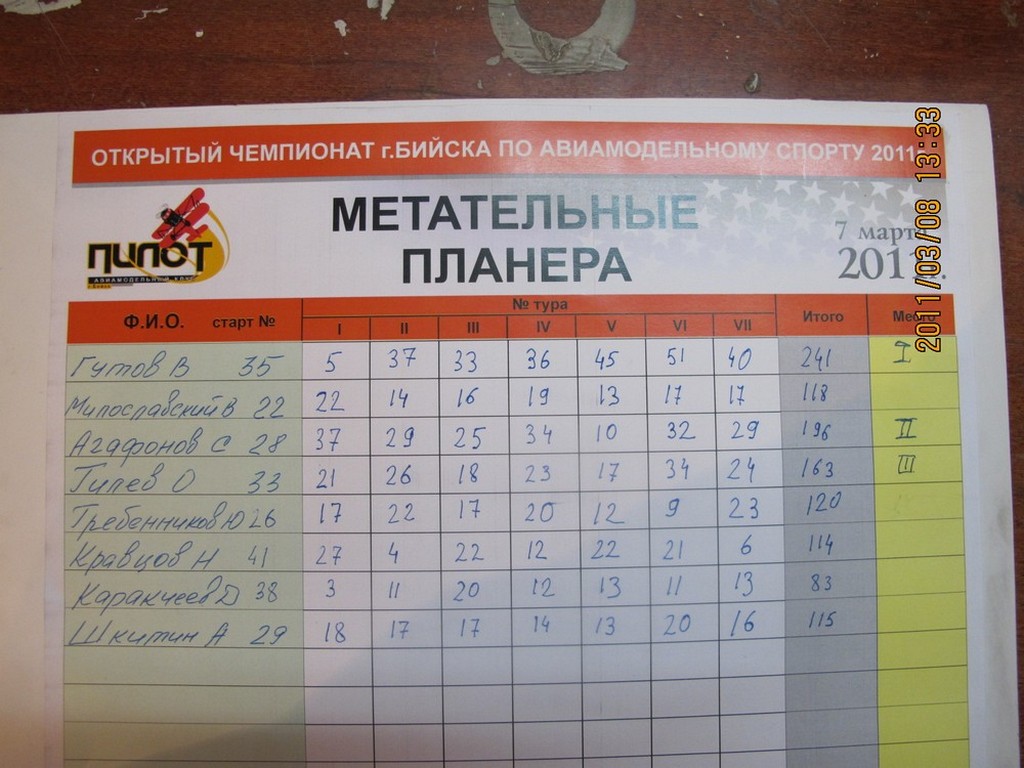 ОТКРЫТЫЙ ЧЕМПИОНАТ г.БИЙСКА ПО АВИАМОДЕЛЬНОМУ СПОРТУ 2011г.
ПИЛОТ
АВИАМОДЕЛЬНЫЙ КЛУБ
г.Бийск
МЕТАТЕЛЬНЫЕ
ПЛАНЕРА
7 марта
2011г.
Ф.И.О. старт № № тура Итого Место
I II III IV V VI VII
Гутов В 35 5 37 33 36 45 51 40 241 I
Милославский В 22 22 14 16 19 13 17 17 118
Агафонов С 28 37 29 25 34 10 32 29 196 II
Гилев О 33 21 26 18 23 17 34 24 163 III
Гребенников Ю 26 17 22 17 20 12 9 23 120
Кравцов Н 41 27 4 22 12 22 21 6 114
Каракчеев Д 38 3 11 20 12 13 11 13 83
Шкитин А 29 18 17 17 14 13 20 16 115
2011/03/08 13:33